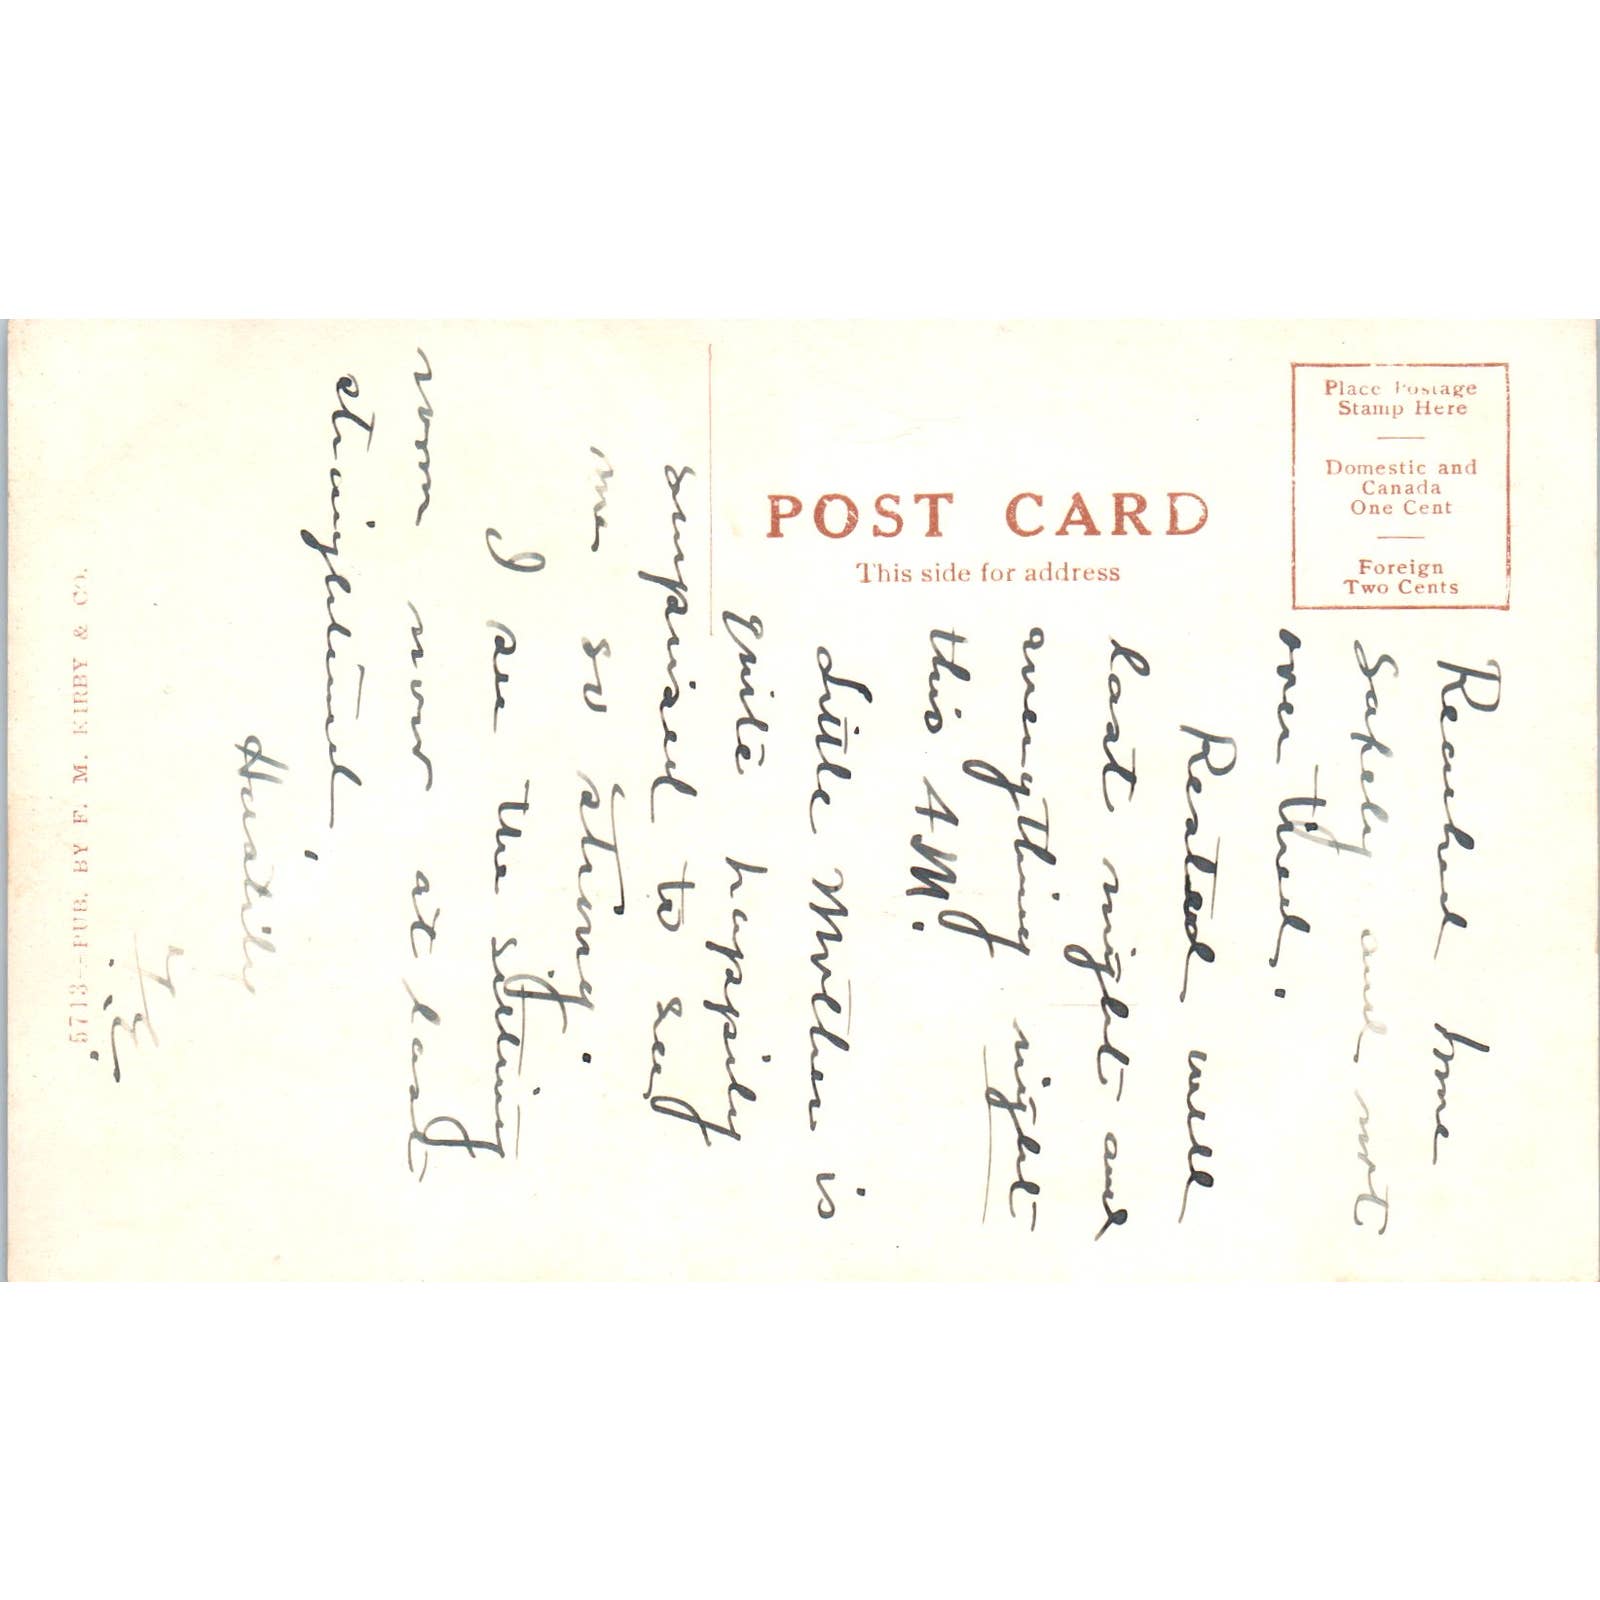 POST CARD
This side for address
Place Postage
Stamp Here
Domestic and
Canada
One Cent
Foreign
Two Cents
Reached home
safely and not
over tired.
Rested well
last night and
everything right
this AM.
Little Mother is
quite happily
surprised to see
me so strong.
I see the sitting
room now at last
straightened.
Hastily
5713—PUB. BY F. M. KIRBY & CO.